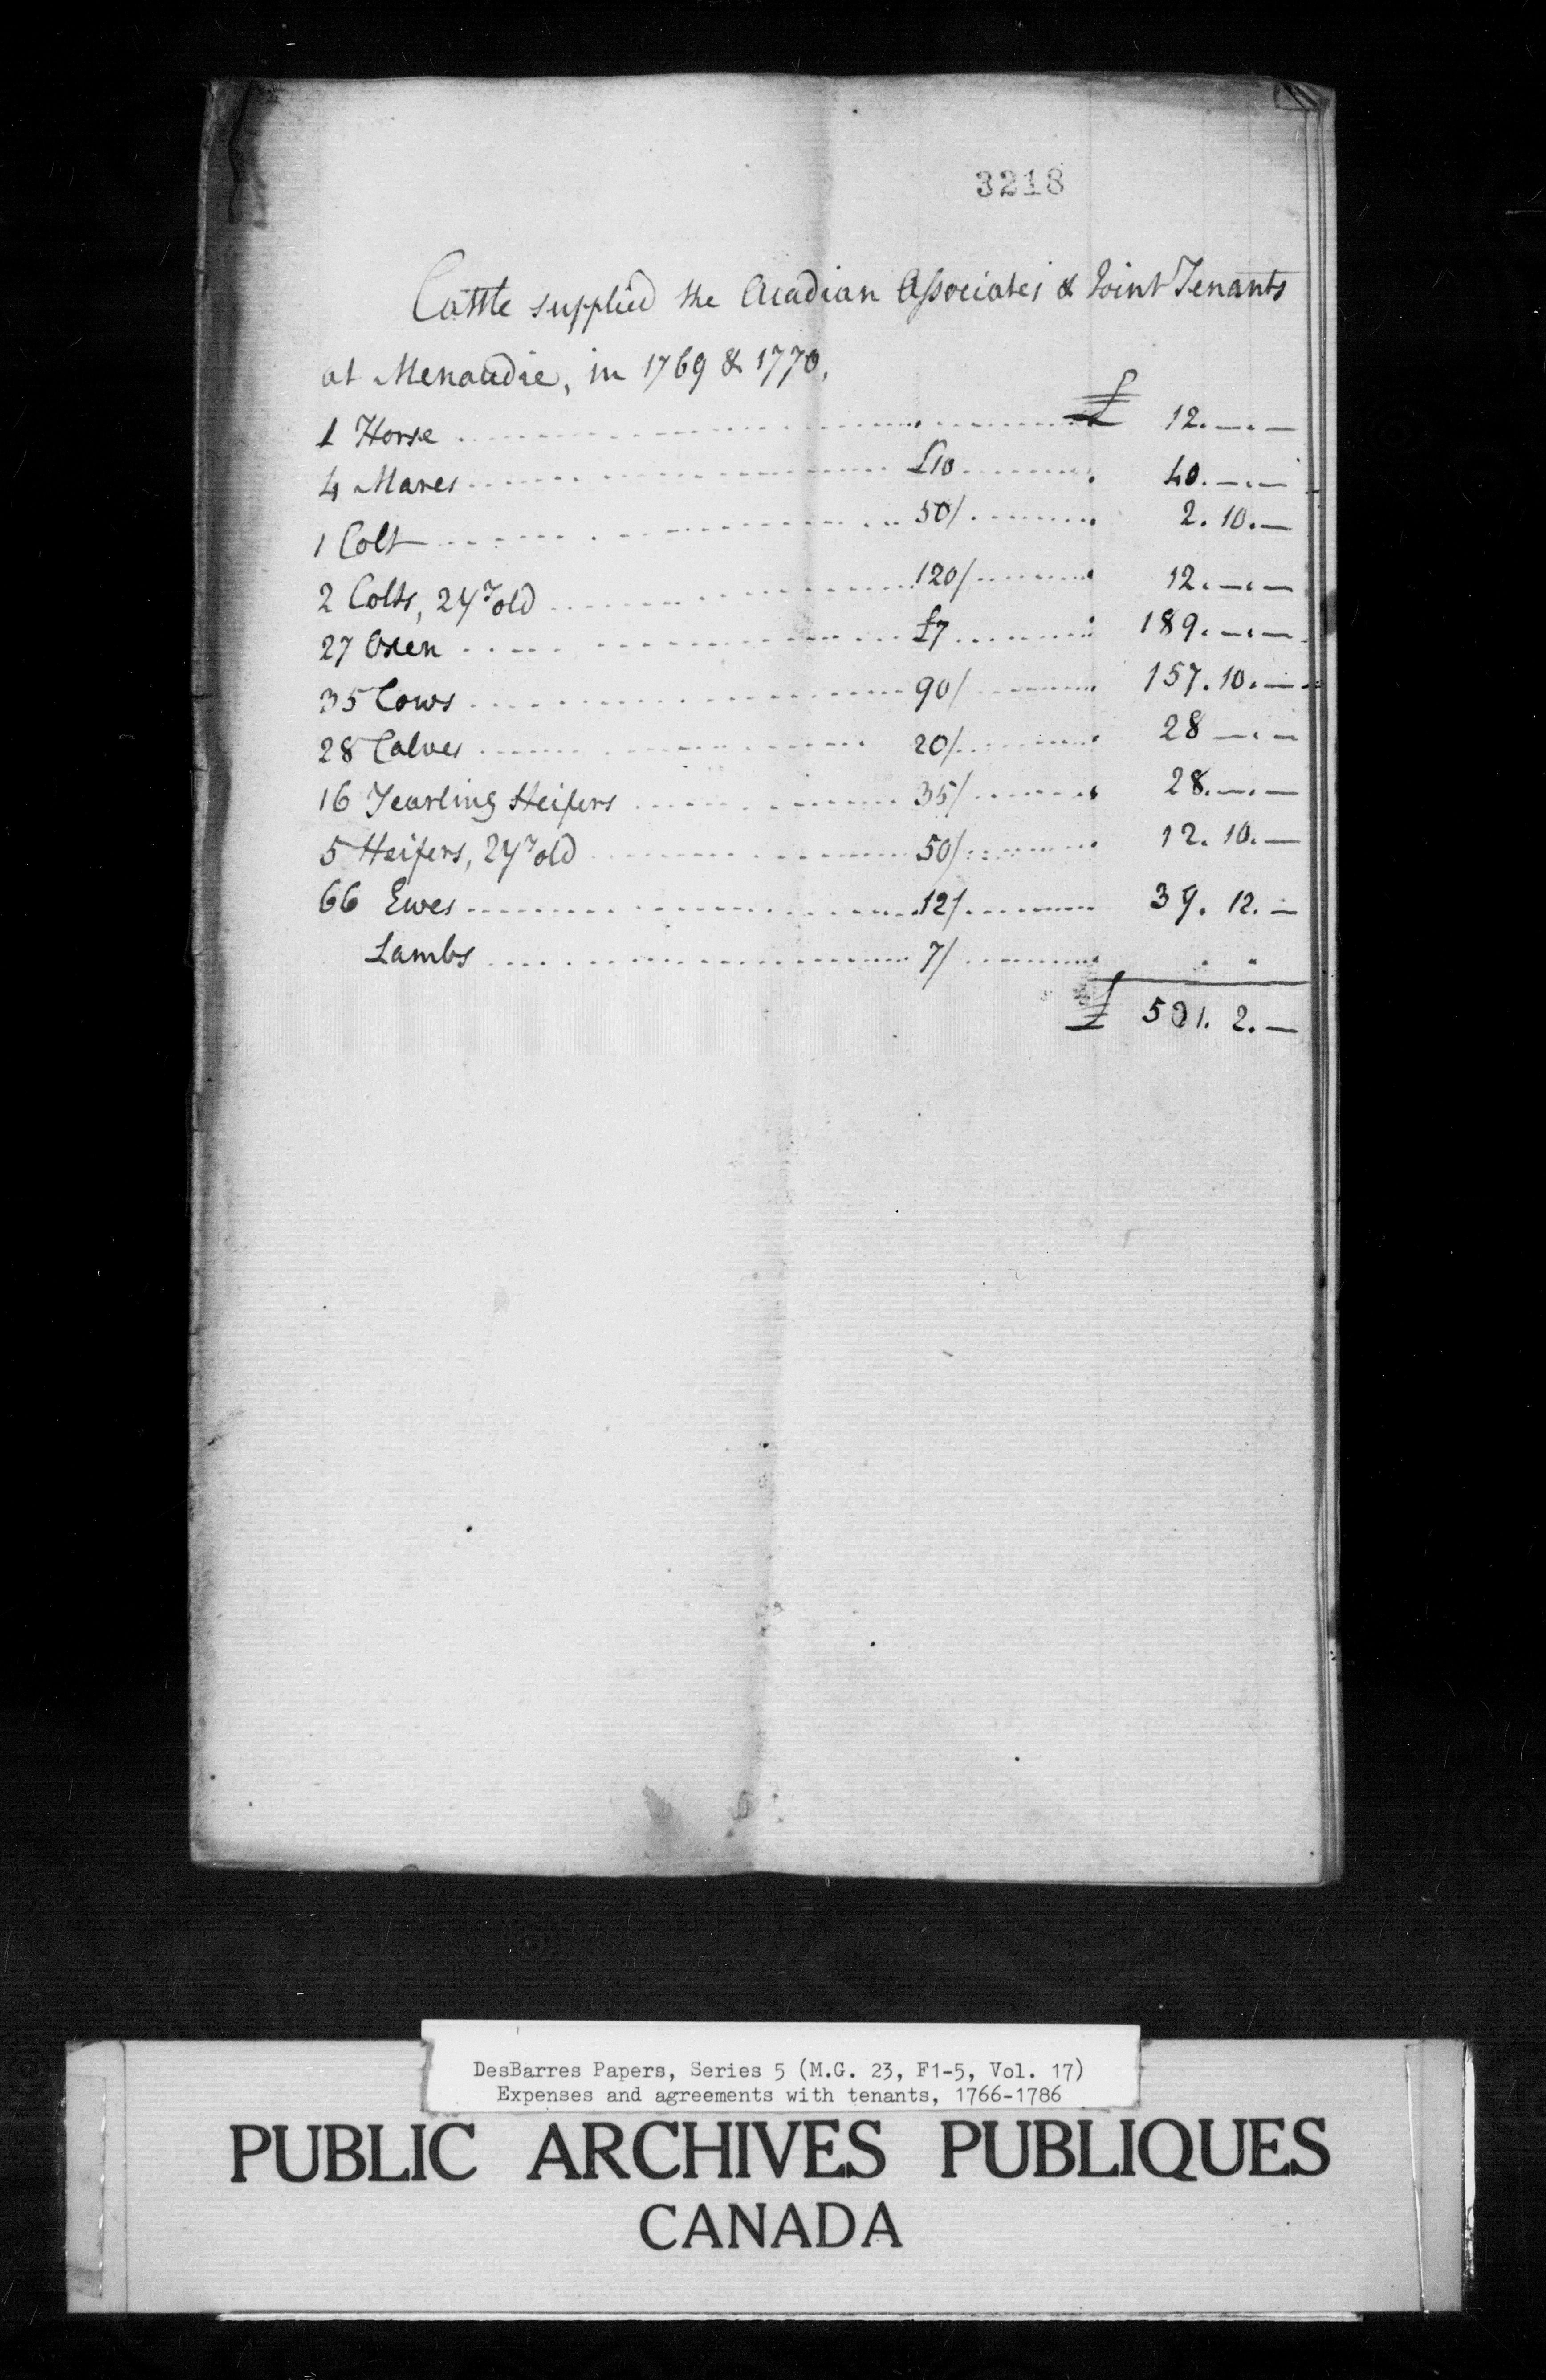 3218
Cattle supplied the Acadian Associates & Joint Tenants
at Menaudie, in 1769 & 1770,
1 Horse ........ £ 12.—.—
4 Mares ........ £10 ........ 40.—.—
1 Colt ........ 50/ ........ 2.10.—
2 Colts, 2 Yr old ........ 120/ ........ 12.—.—
27 Oxen ........ £7 ........ 189.—.—
35 Cows ........ 90/ ........ 157.10.—
28 Calves ........ 20/ ........ 28 —.—
16 Yearling Heifers ........ 35/ ........ 28.—.—
5 Heifers, 2 Yr old ........ 50/ ........ 12.10.—
66 Ewes ........ 12/ ........ 39.12.—
Lambs ........ 7/ ........ . .
£ 521.2.—
DesBarres Papers, Series 5 (M.G. 23, F1-5, Vol. 17)
Expenses and agreements with tenants, 1766-1786
PUBLIC ARCHIVES PUBLIQUES
CANADA